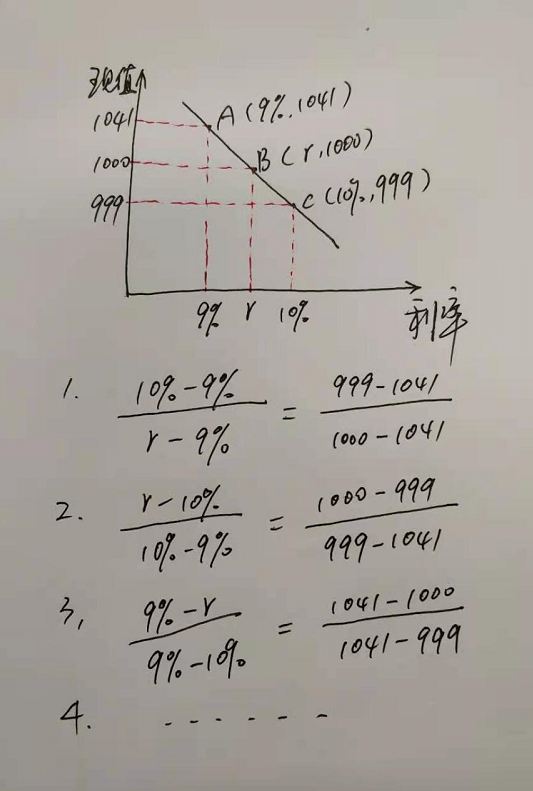 现值
1041
A (9%, 1041)
1000
B (r, 1000)
999
C (10%, 999)
9% r 10%
利率
1. (10%-9%)/(r-9%) = (999-1041)/(1000-1041)
2. (r-10%)/(10%-9%) = (1000-999)/(999-1041)
3, (9%-r)/(9%-10%) = (1041-1000)/(1041-999)
4. - - - - - -